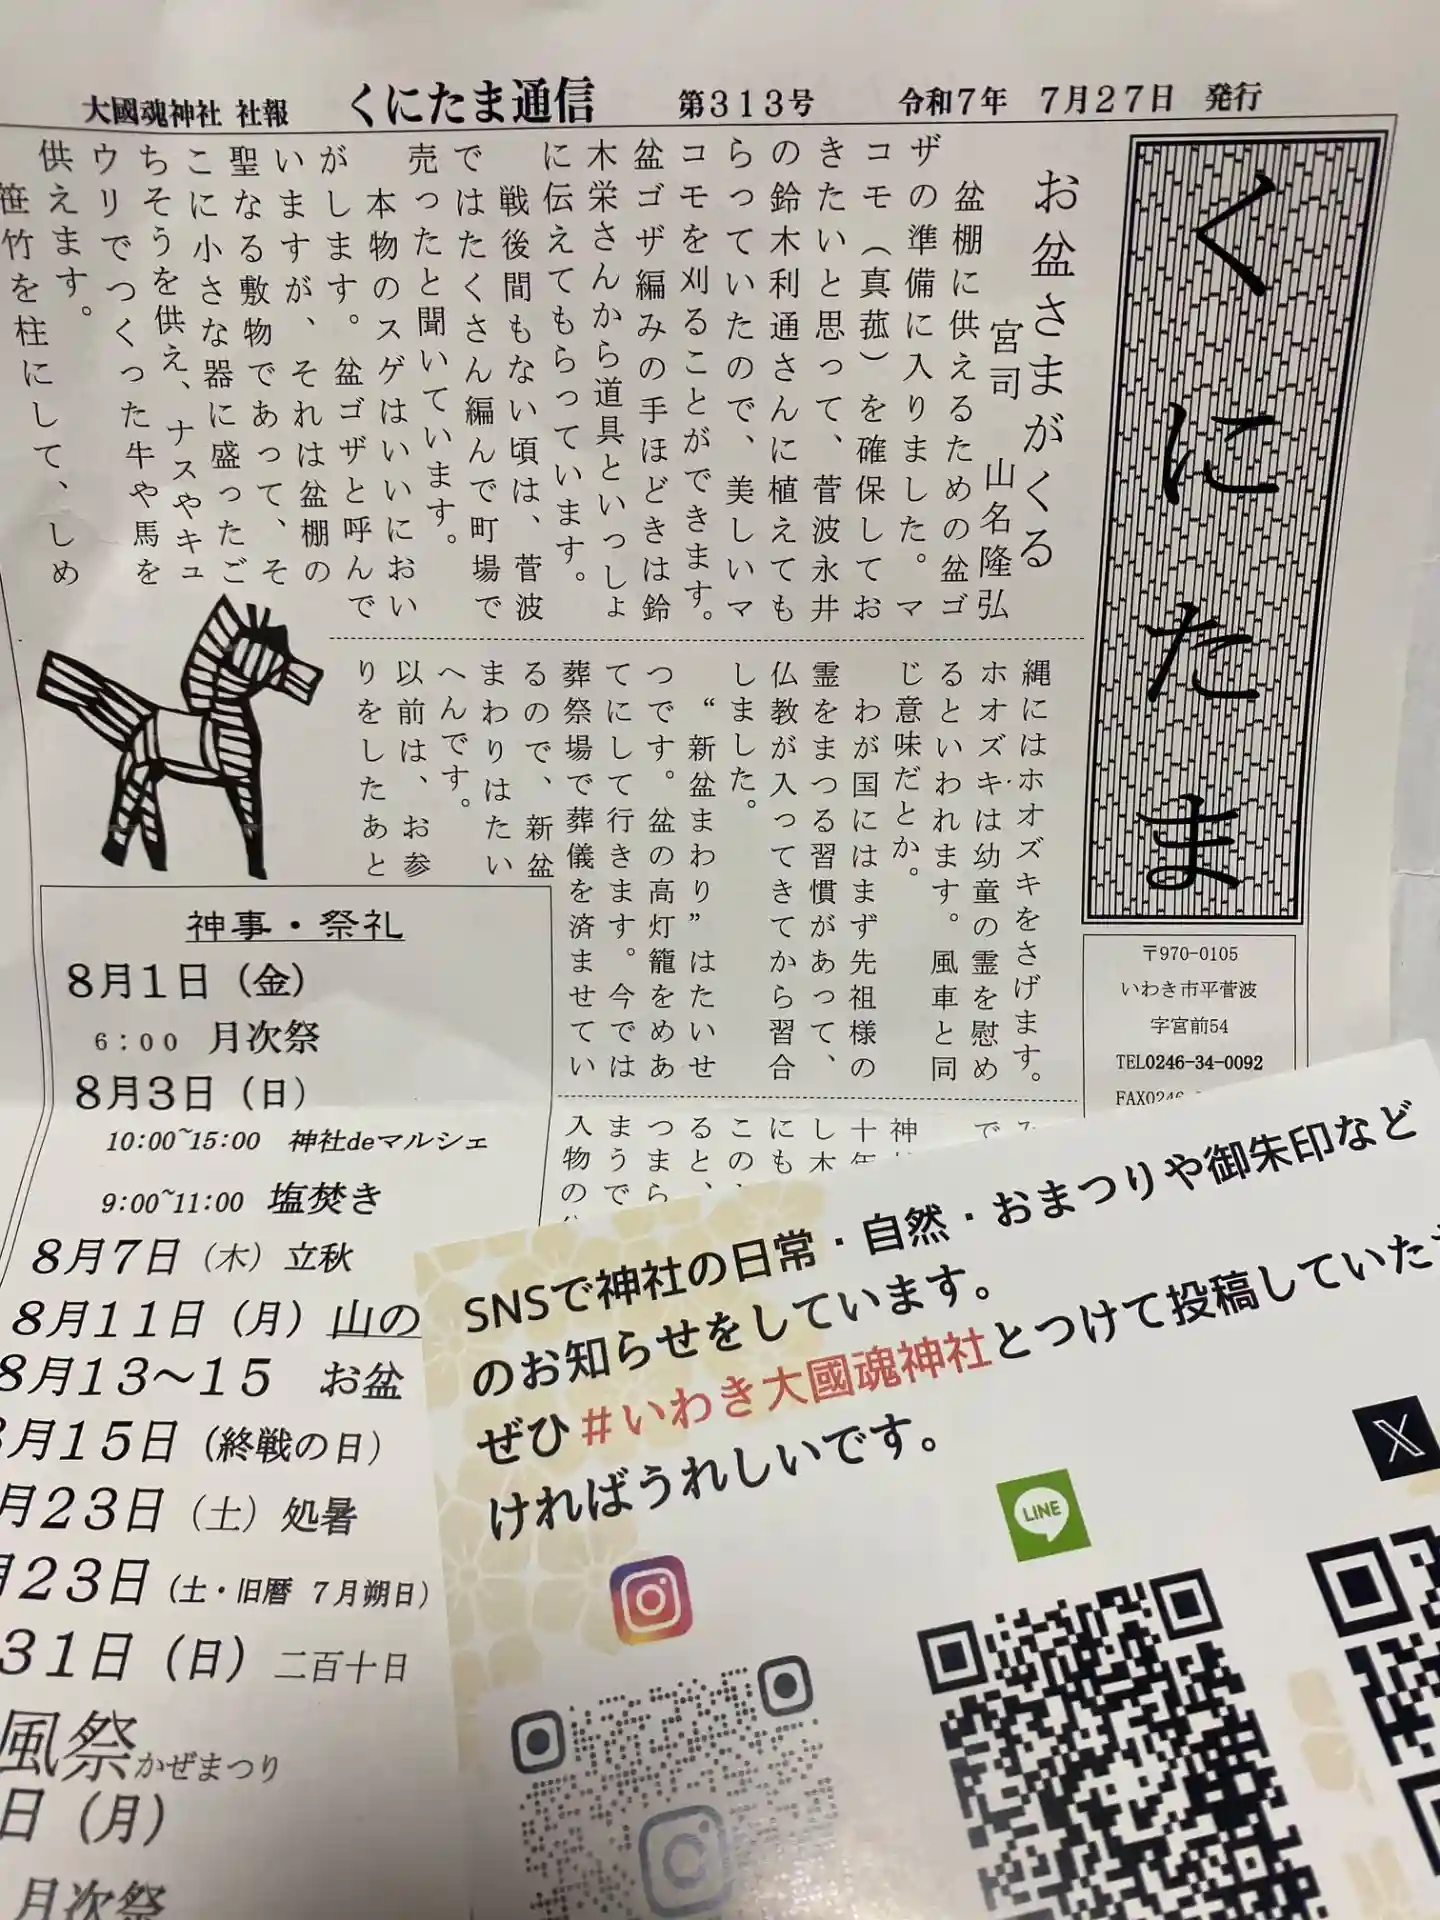 大國魂神社 社報 くにたま通信 第313号 令和7年 7月27日 発行
くにたま
〒970-0105
いわき市平菅波
字宮前54
TEL0246-34-0092
FAX0246
お盆さまがくる
宮司 山名隆弘
盆棚に供えるための盆ゴ
ザの準備に入りました。マ
コモ（真菰）を確保してお
きたいと思って、菅波永井
の鈴木利通さんに植えても
らっていたので、美しいマ
コモを刈ることができます。
盆ゴザ編みの手ほどきは鈴
木栄さんから道具といっしょ
に伝えてもらっています。
戦後間もない頃は、菅波
ではたくさん編んで町場で
売ったと聞いています。
本物のスゲはいいにおい
がします。盆ゴザと呼んで
いますが、それは盆棚の
聖なる敷物であって、そ
こに小さな器に盛ったご
ちそうを供え、ナスやキュ
ウリでつくった牛や馬を
供えます。
笹竹を柱にして、しめ
縄にはホオズキをさげます。
ホオズキは幼童の霊を慰め
るといわれます。風車と同
じ意味だとか。
わが国にはまず先祖様の
霊をまつる習慣があって、
仏教が入ってきてから習合
しました。
“新盆まわり”はたいせ
つです。盆の高灯籠をめあ
てにして行きます。今では
葬祭場で葬儀を済ませてい
るので、新盆
まわりはたい
へんです。
以前は、お参
りをしたあと
で
神
十年
し木
にも
この
ると、
つまら
まうで
入物の
神事・祭礼
8月1日（金）
6：00 月次祭
8月3日（日）
10:00~15:00 神社deマルシェ
9:00~11:00 塩焚き
8月7日（木）立秋
8月11日（月）山の
8月13～15 お盆
8月15日（終戦の日）
月23日（土）処暑
月23日（土・旧暦 7月朔日）
31日（日）二百十日
風祭かぜまつり
日（月）
月次祭
SNSで神社の日常・自然・おまつりや御朱印など
のお知らせをしています。
ぜひ#いわき大國魂神社とつけて投稿していた
ければうれしいです。
LINE